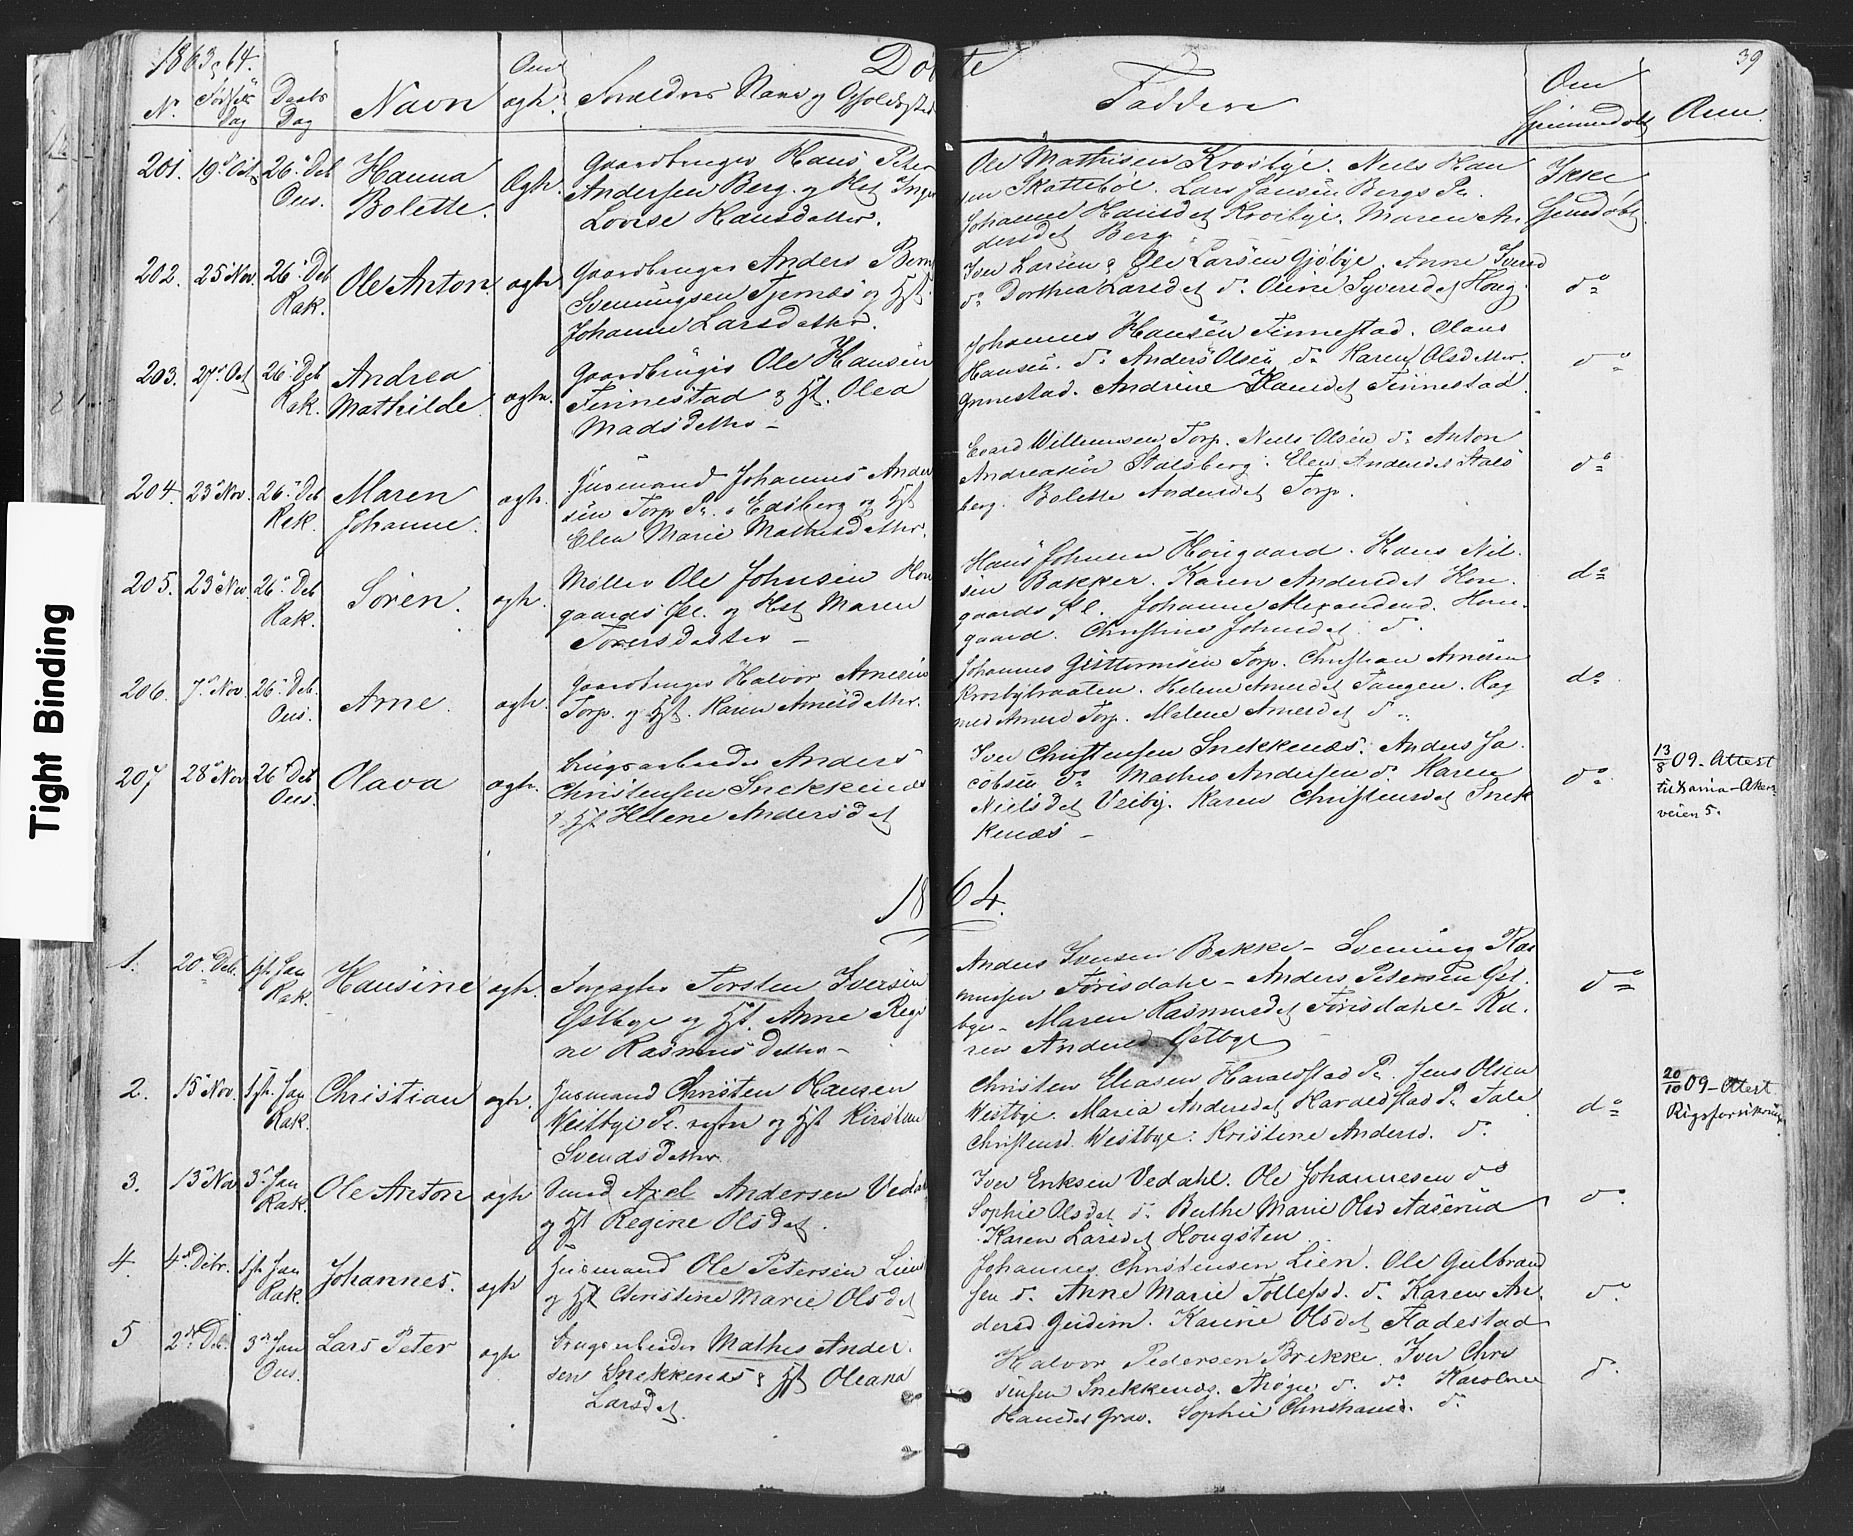 1863 & 64.
Døbte
39
N.
Fødsels Dag
Daabs Dag
Navn
Om ægte
Forældres Navn og Opholdssted
Faddere
Om Hjemmedøbt
Anm.
201. 19de Octb 26de Deb Ous. Hanna Bolette. ægte.
Gaardbruger Hans Peter
Andersen Berg. og Hst Inger
Lovise Hansdatter.
Ole Mathisen Krosbye. Niels Han
sen Skattebøl. Lars Jansen Bergs Pl.
Johanne Hansdat Krosbye. Maren An
dersdat Berg.
Ikke hjemdøbt
202. 25 Nov. 26 Deb Rak. Ole Anton. ægte.
Gaardbruger Anders Bern
Svenningsen Tjernæs og Hst.
Johanne Larsdatter.
Iver Larsen & Ole Larsen Gjøbye. Anne Iversd
do Dorthea Larsdat do. Oline Syversdat Houg.
do
203. 27de Oct 26 Deb Rak. Andrea Mathilde. ægte.
Gaardbruger Ole Hansen
Finnestad & Hst. Olea
Madsdatter -
Johannes Hansen Finnestad. Olaus
Hansen. do Anders Olsen do Karen Olsdatter.
Gnnestad. Andrine Hansdat Finnestad.
do
204. 23 Nov. 26 Deb Rak. Maren Johanne. ægte.
Huusmand Johannes Ander
sen Torp Pl. i Edsberg og Hst
Elen Marie Mathisdatter.
Evard Willumsen Torp. Niels Olsen do Anton
Andreasen Stalsberg. Elen Andersdat Stals
berg. Bolette Andersdat Torp.
do
205. 23 Nov. 26 Deb Rak. Søren. ægte.
Møller Ole Johnsen Hon
gaards Pl. og Hst Maren
Torersdatter -
Hans Johnsen Hongaard. Hans Nil
sen Bakker. Karen Andersdat Hon
gaards Pl. Johanne Alexandersd. Hon
gaard. Christine Johnsdat do.
do
206. 7de Nov. 26 Deb. Ous. Arne. ægte.
Gaardbruger Halvor Arnesen
Torp. og Hst. Karen Arnesdatter.
Johannes Guttormsen Torp. Christian Arnesen
Krosbybraaten. Helene Arnesdat Tangen. Rag
nild Arnesd Torp. Melene Arnesdat do.
do
207 28 Nov. 26 Deb Ous. Olava ægte.
Brugsarbeider Anders
Christensen Snekkenæs
og Hst Helene Andersdat
Iver Christensen Snekkenæs. Anders Ja
cobsen do. Mathis Andersen do. Karen
Nielsdat Veiby. Karen Christensdat Snek
kenæs -
do
13/8 09 - Attest
til Kania - Akers-
veien 5.
1864.
1. 20 Deb. 1st Jan Rak. Hansine ægte.
Forpagter Torsten Iversen
Østbye og Hst. Anne Regi
ne Rasmusdatter -
Anders Ivensen Bekke - Svenning Ras
mussen Førisdahl - Anders Petersen Øst
bye - Maren Rasmusdat Førisdahl - Ka
ren Andersd Østbye
do
2. 15 Nov. 1st. Jan Rak. Christian ægte.
Huusmand Christen Hansen
Westbye Pl. og Hst Kirstine
Svendsdatter.
Christen Eliasen Haraldstad Pl. Jens Olsen
Westbye. Maria Andersdat Haraldstad Pl.
Christensd. Westbye. Kristine Andersd. do.
do
20/10 09 - Attest
Rigsforsikring.
3. 13 Nov 3. Jan Rak. Ole Anton ægte
Smed Axel Andersen Vedahl
og Hst Regine Olsdat.
Iver Eriksen Vedahl. Ole Johannesen do
Sophie Olsdat do. Berthe Marie Olsd Aaserud
Karen Larsdat Hougsten
do.
4. 4de Debr. 1st Jan Rak. Johannes. ægte
Huusmand Ole Petersen Lien
og Hst Christine Marie Olsdat
Johannes Christensen Lien. Ole Gulbrand
sen do. Anne Marie Tollefsd. do. Karen An
dersd Gudim. Karine Olsdat Fladestad
do.
5 2den Deb. 3de Jan Ous. Lars Peter ægte
Brugsarbeider Mathis Ander
sen Snekkenæs & Hst Oleana
Larsdat.
Halvor Pedersen Brekke. Iver Chri
stensen Snekkenæs. do. do Karoline
Hansdat Grav. Sophie Christiansd. do.
do.
Tight Binding